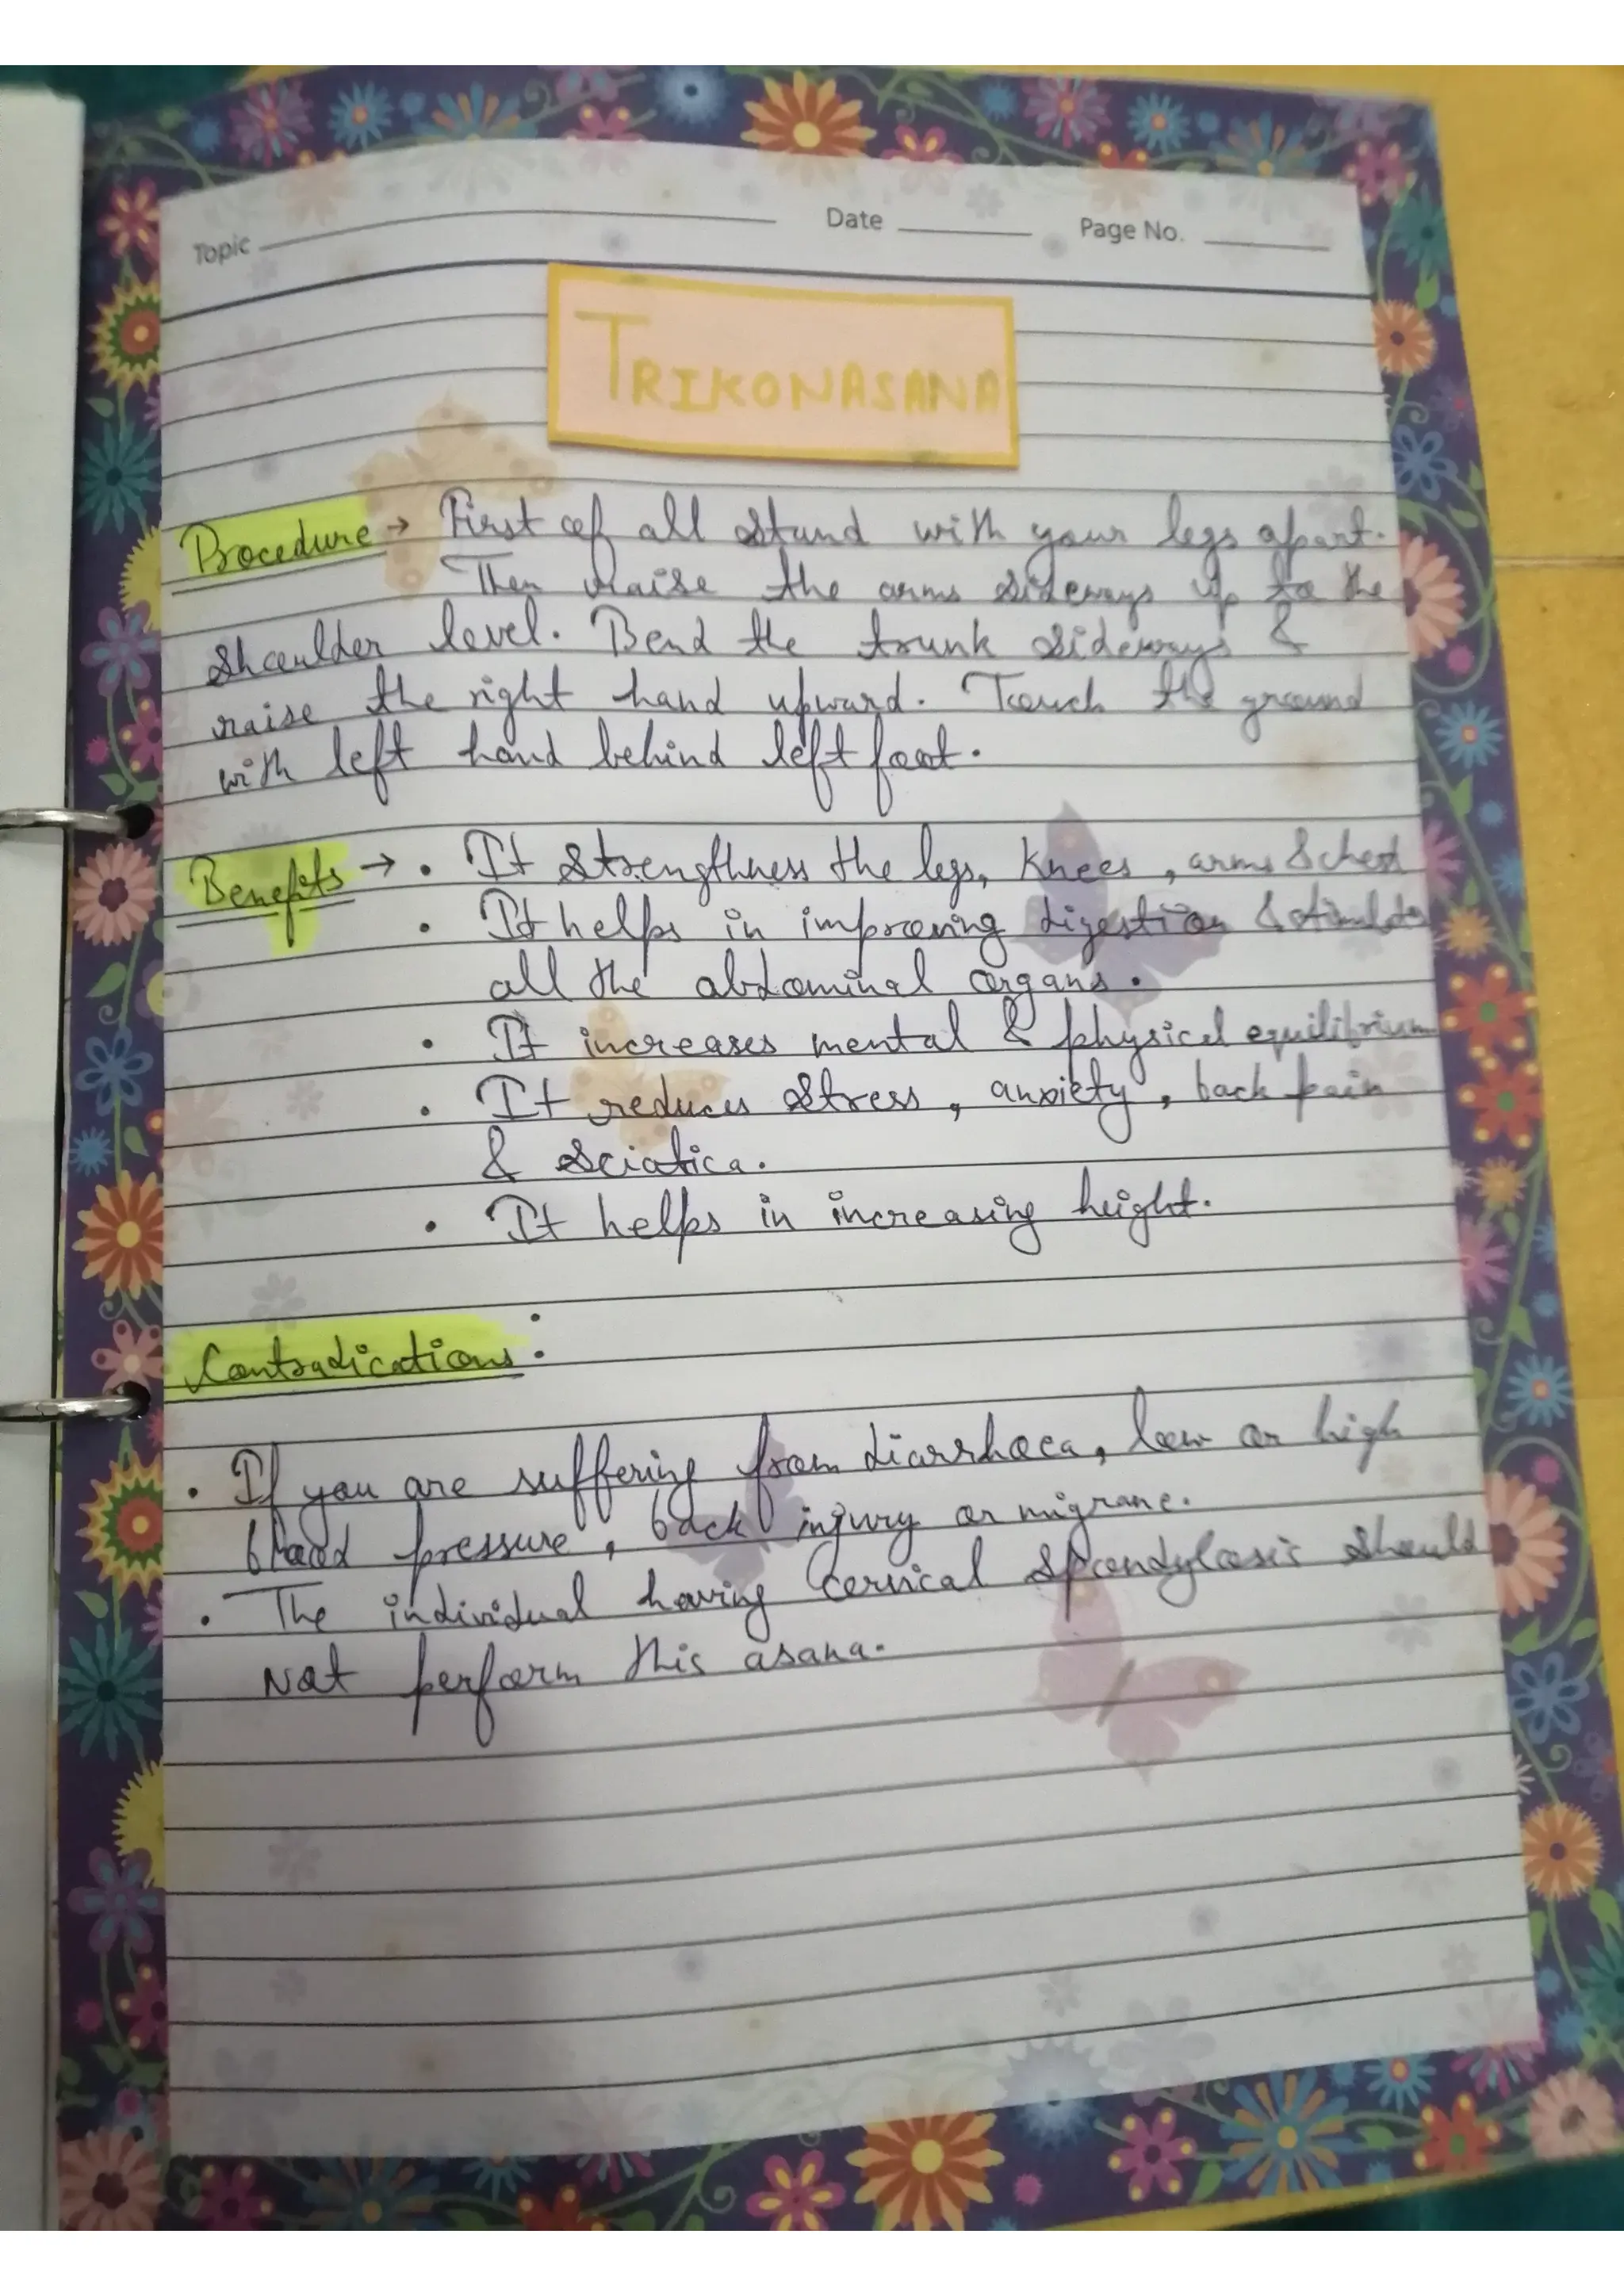 Topic Date Page No.
TRIKONASANA
Procedure → First of all stand with your legs apart.
Then raise the arms sideways up to the
shoulder level. Bend the trunk sideways &
raise the right hand upward. Touch the ground
with left hand behind left foot.
Benefits → • It strengthness the legs, knees, arms & chest
• It helps in improving digestion & stimulates
all the abdominal organs.
• It increases mental & physical equilibrium
• It reduces stress, anxiety, back pain
& sciatica.
• It helps in increasing height.
Contradications :
• If you are suffering from diarrhoea, low or high
blood pressure, back injury or migrane.
• The individual having cervical spondylosis should
Not perform this asana.